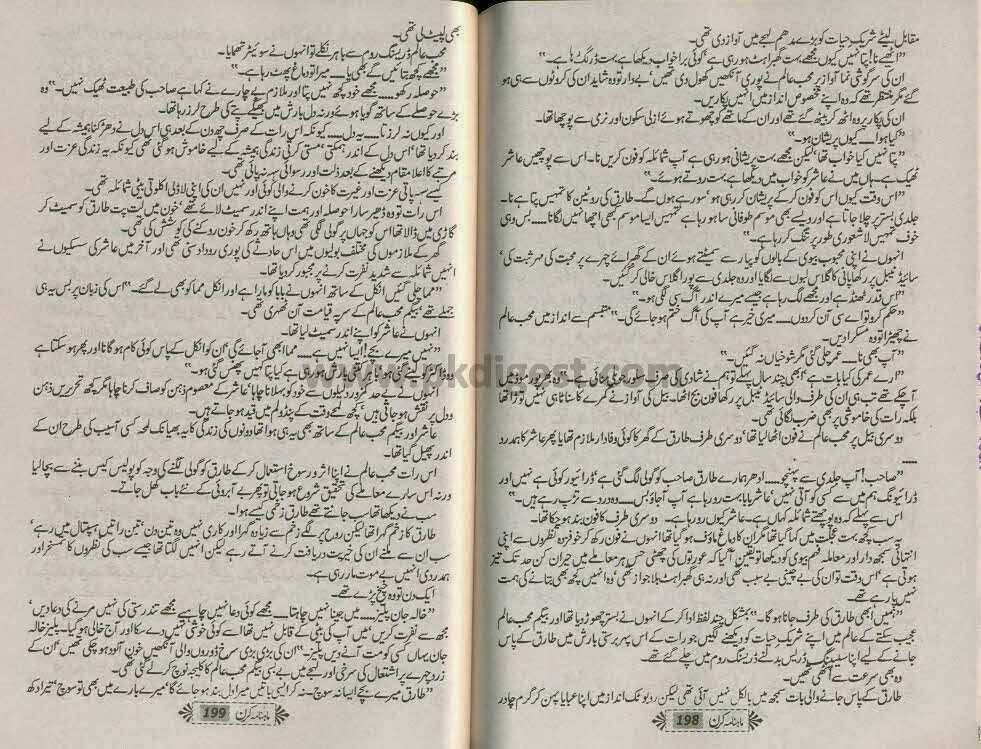 مقابل لیٹے شریک حیات کو بڑے مدھم لہجے میں آواز دی تھی۔
"اٹھیے نا! پتا نہیں کیوں مجھے بہت گھبراہٹ ہو رہی ہے' کوئی برا خواب دیکھا ہے بہت ڈر لگ رہا ہے۔"
ان کی سرگوشی نما آواز پر محب عالم نے پوری آنکھیں کھول دی تھیں' بیدار تو وہ شاید ان کی کروٹوں سے ہی ہو
گئے مگر منتظر تھے کہ وہ اپنے مخصوص انداز میں انہیں پکاریں۔
ان کی پکار پر وہ اٹھ کر بیٹھ گئے تھے اور ان کے ماتھے کو چھوتے ہوئے ازلی سکون اور نرمی سے پوچھا تھا۔
"کیا ہوا... کیوں پریشان ہو۔"
"پتا نہیں کیا خواب تھا' لیکن مجھے بہت پریشانی ہو رہی ہے آپ شمائلہ کو فون کریں نا۔ اس سے پوچھیں عاشر
ٹھیک ہے۔ ہاں میں نے عاشر کو خواب میں دیکھا ہے بہت روتے ہوئے۔"
"اس وقت کیوں اس کو فون کر کے پریشان کر رہی ہو' سو رہے ہوں گے۔ طارق کی روٹین کا تمہیں پتا ہے نا۔
جلدی بستر پر چلا جاتا ہے اور ویسے بھی موسم طوفانی سا ہو رہا ہے تمہیں ایسا موسم بھی اچھا نہیں لگتا... بس وہی
خوف تمہیں لاشعوری طور پر تنگ کر رہا ہے۔"
انہوں نے اپنی محبوب بیوی کے بالوں کو پیار سے سمیٹتے ہوئے ان کے گھبرائے چہرے پر محبت کی مہر ثبت کی'
سائیڈ ٹیبل پر رکھا پانی کا گلاس لبوں سے لگایا اور وہ جلدی سے پورا گلاس خالی کر گئیں۔
"اس قدر ٹھنڈ ہے اور مجھے لگ رہا ہے جیسے میرے اندر آگ سی لگی ہو۔"
"حکم کرو تو اے سی آن کر دوں... میری خیر ہے آپ کی آگ ختم ہو جائے گی۔" متبسم سے انداز میں محب عالم
نے چھیڑا تو وہ مسکرا دیں۔
"آپ بھی نا... عمر چلی گئی مگر شوخیاں نہ گئیں۔"
"ارے عمر کی کیا بات ہے' ابھی چند سال پہلے تو ہم نے شادی کی
آ چکے تھے تب ہی ان کی طرف والی سائیڈ ٹیبل پر رکھا فون بج اٹھا۔ بیل کی آواز نے کمرے کا سناٹا ہی نہیں توڑا تھا
بلکہ رات کی خاموشی پر بھی ضرب لگائی تھی۔
دوسری بیل پر محب عالم نے فون اٹھا لیا تھا' دوسری طرف طارق کے گھر کا کوئی وفادار ملازم تھا یا پھر عاشر کا ہمدرد
.....
"صاحب! آپ جلدی سے پہنچو... ادھر ہمارے طارق صاحب کو گولی لگ گئی ہے' ڈرائیور کوئی ہے نہیں اور
ڈرائیونگ ہم میں سے کسی کو آتی نہیں' عاشر بابا بہت رو رہا ہے آپ آ جاؤ بس... وہ درد سے تڑپ رہے ہیں۔"
اس سے پہلے کہ وہ پوچھتے شمائلہ کہاں ہے۔ عاشر کیوں رو رہا ہے۔ دوسری طرف کا فون بند ہو چکا تھا۔
یہ سب کچھ بہت عجلت میں کہا گیا تھا مگر ان کا دماغ ماؤف ہو گیا تھا انہوں نے فون رکھ کر خوفزدہ نظروں سے اپنی
انتہائی سمجھ دار اور معاملہ فہم بیوی کو دیکھا تو یقین آ گیا کہ عورتوں کی چھٹی حس ہر معاملے میں حیران کن حد تک تیز
ہوتی ہے' اس وقت تو ان کی بے چینی بے سبب تھی اور نہ ہی گھبراہٹ بلاجواز تھی' وہ انہیں کچھ بھی بتانے کی ہمت
نہیں پا رہے تھے۔
"ہمیں ابھی طارق کی طرف جانا ہو گا۔" بمشکل چند لفظ ادا کر کے انہوں نے بستر چھوڑ دیا تھا اور بیگم محب عالم
عجیب سکتے کے عالم میں اپنے شریک حیات کو دیکھنے لگیں جو رات کے اس پہر برستی بارش میں طارق کے پاس
جانے کے لیے اپنا سلیپنگ ڈریس بدلنے ڈریسنگ روم میں چلے گئے تھے۔
وہ بھی سرعت سے اٹھی تھیں۔
طارق کے پاس جانے والی بات سمجھ میں بالکل نہیں آئی تھی لیکن روبوٹک انداز میں اپنا عبایا پہن کر گرم چادر
ماہنامہ کرن 198
بھی لپیٹ لی تھی۔
محب عالم ڈریسنگ روم سے باہر نکلے تو انہوں نے سویٹر تھمایا۔
"مجھے کچھ بتائیں گے بھی یا... میرا تو دماغ پھٹ رہا ہے۔"
"حوصلہ رکھو... مجھے خود کچھ نہیں پتا اور ملازم بے چارے نے کہا ہے صاحب کی طبیعت ٹھیک نہیں۔" وہ
بڑے حوصلے کے ساتھ گویا ہوئے ورنہ دل بارش میں بھیگے پتے کی طرح لرز رہا تھا۔
اور کیوں نہ لرزتا... یہ دل... کیونکہ اس رات کے صرف چھ دن کے بعد ہی اس دل نے دھڑکنا ہمیشہ کے لیے
بند کر دیا تھا' اس دل کے اندر ہمکتی' ہمستی کرتی زندگی ہمیشہ کے لیے خاموش ہو گئی تھی کیونکہ یہ زندگی عزت اور
مرتبے کا اعلا مقام دیکھنے کے بعد ذلت اور رسوائی سہہ نہ پائی تھی۔
کیسے سہہ پاتی عزت اور غیرت کا خون کرنے والی کوئی اور نہیں ان کی اپنی لاڈلی اکلوتی بیٹی شمائلہ تھی۔
اس رات تو وہ ڈھیر سارا حوصلہ اور ہمت اپنے اندر سمیٹ لائے تھے' خون میں لت پت طارق کو سمیٹ کر
گاڑی میں ڈالا تھا' اس کو جہاں پر گولی لگی تھی وہاں ہاتھ رکھ کر خون روکنے کی کوشش کی تھی۔
گھر کے ملازموں کی مختلف بولیوں میں اس حادثے کی پوری روداد سنی تھی اور آخر میں عاشر کی سسکیوں نے
انہیں شمائلہ سے شدید نفرت کرنے پر مجبور کر دیا تھا۔
"مما چلی گئیں انکل کے ساتھ انہوں نے بابا کو مارا ہے اور انکل مما کو بھی لے گئے۔" اس کی زبان پر بس یہ ہی
جملے تھے بیگم محب عالم کے سر پہ قیامت آن ٹھہری تھی۔
انہوں نے عاشر کو اپنے اندر سمیٹ لیا تھا۔
"نہیں میرے بچے! ایسا نہیں ہے... مما ابھی آ جائے گی' ان کو انکل کے پاس کوئی کام ہو گا نا اور پھر ہو سکتا ہے
وہ ڈاکٹر کو لینے گئی ہو
انہوں نے بے حد کمزور دلیلوں سے خود کو بہلانا چاہا' عاشر کے معصوم ذہن کو صاف کرنا چاہا مگر کچھ تحریریں ذہن
و دل پر نقش ہو جاتی ہیں' کچھ لمحے وقت کے پنڈولم میں قید ہو جاتے ہیں۔
عاشر اور بیگم محب عالم کے ساتھ بھی یہ ہی ہوا تھا دونوں کی زندگی کا یہ بھیانک لمحہ کسی آسیب کی طرح ان کے
اندر پھیل گیا تھا۔
اس رات محب عالم نے اپنا اثر و رسوخ استعمال کر کے طارق کو گولی لگنے کی وجہ کو پولیس کیس بننے سے بچا لیا
ورنہ اس سارے معاملے کی تحقیق شروع ہو جاتی تو پھر بے آبروئی کے نئے باب کھل جاتے۔
سب نے دیکھا تھا سب جانتے تھے طارق زخمی کیسے ہوا۔
طارق کا زخم گہرا تھا لیکن روح پر لگے زخم سے زیادہ گہرا اور کاری نہیں وہ تین دن' تین راتیں ہسپتال میں رہے'
سب ان سے ملنے ان کی خیریت دریافت کرنے آتے رہے لیکن انہیں لگتا تھا جیسے سب کی نظروں کا تمسخر اور
ہمدردی انہیں بے موت مار رہی ہے۔
ایک دن تو وہ چیخ پڑے تھے۔
"خالہ جان پلیز... میں جینا نہیں چاہتا... مجھے کوئی دعا نہیں چاہیے مجھے تندرستی کی نہیں مرنے کی دعا دیں'
مجھ سے نفرت کریں میں آپ کی بیٹی کے قابل نہیں تھا' اسے کوئی خوشی نہیں دے سکا اور آج خالی ہو گیا۔ پلیز خالہ
جان یہاں کسی کو مت آنے دیں پلیز۔" ان کی بڑی بڑی سرخ ڈوروں والی آنکھیں خون آلود ہو چکی تھیں' ان کے
زرد چہرے پر اشتعال کی سرخی اور لہجے میں بے بسی بیگم محب عالم کا کلیجہ نوچ کر لے گئی تھی۔
"طارق میرے بچے ایسا نہ سوچ۔ نہ کر ایسی باتیں میرا دل بند ہو جائے گا' میرے بارے میں بھی تو سوچ' تیرا دکھ
ماہنامہ کرن 199
www.pkdigest.com